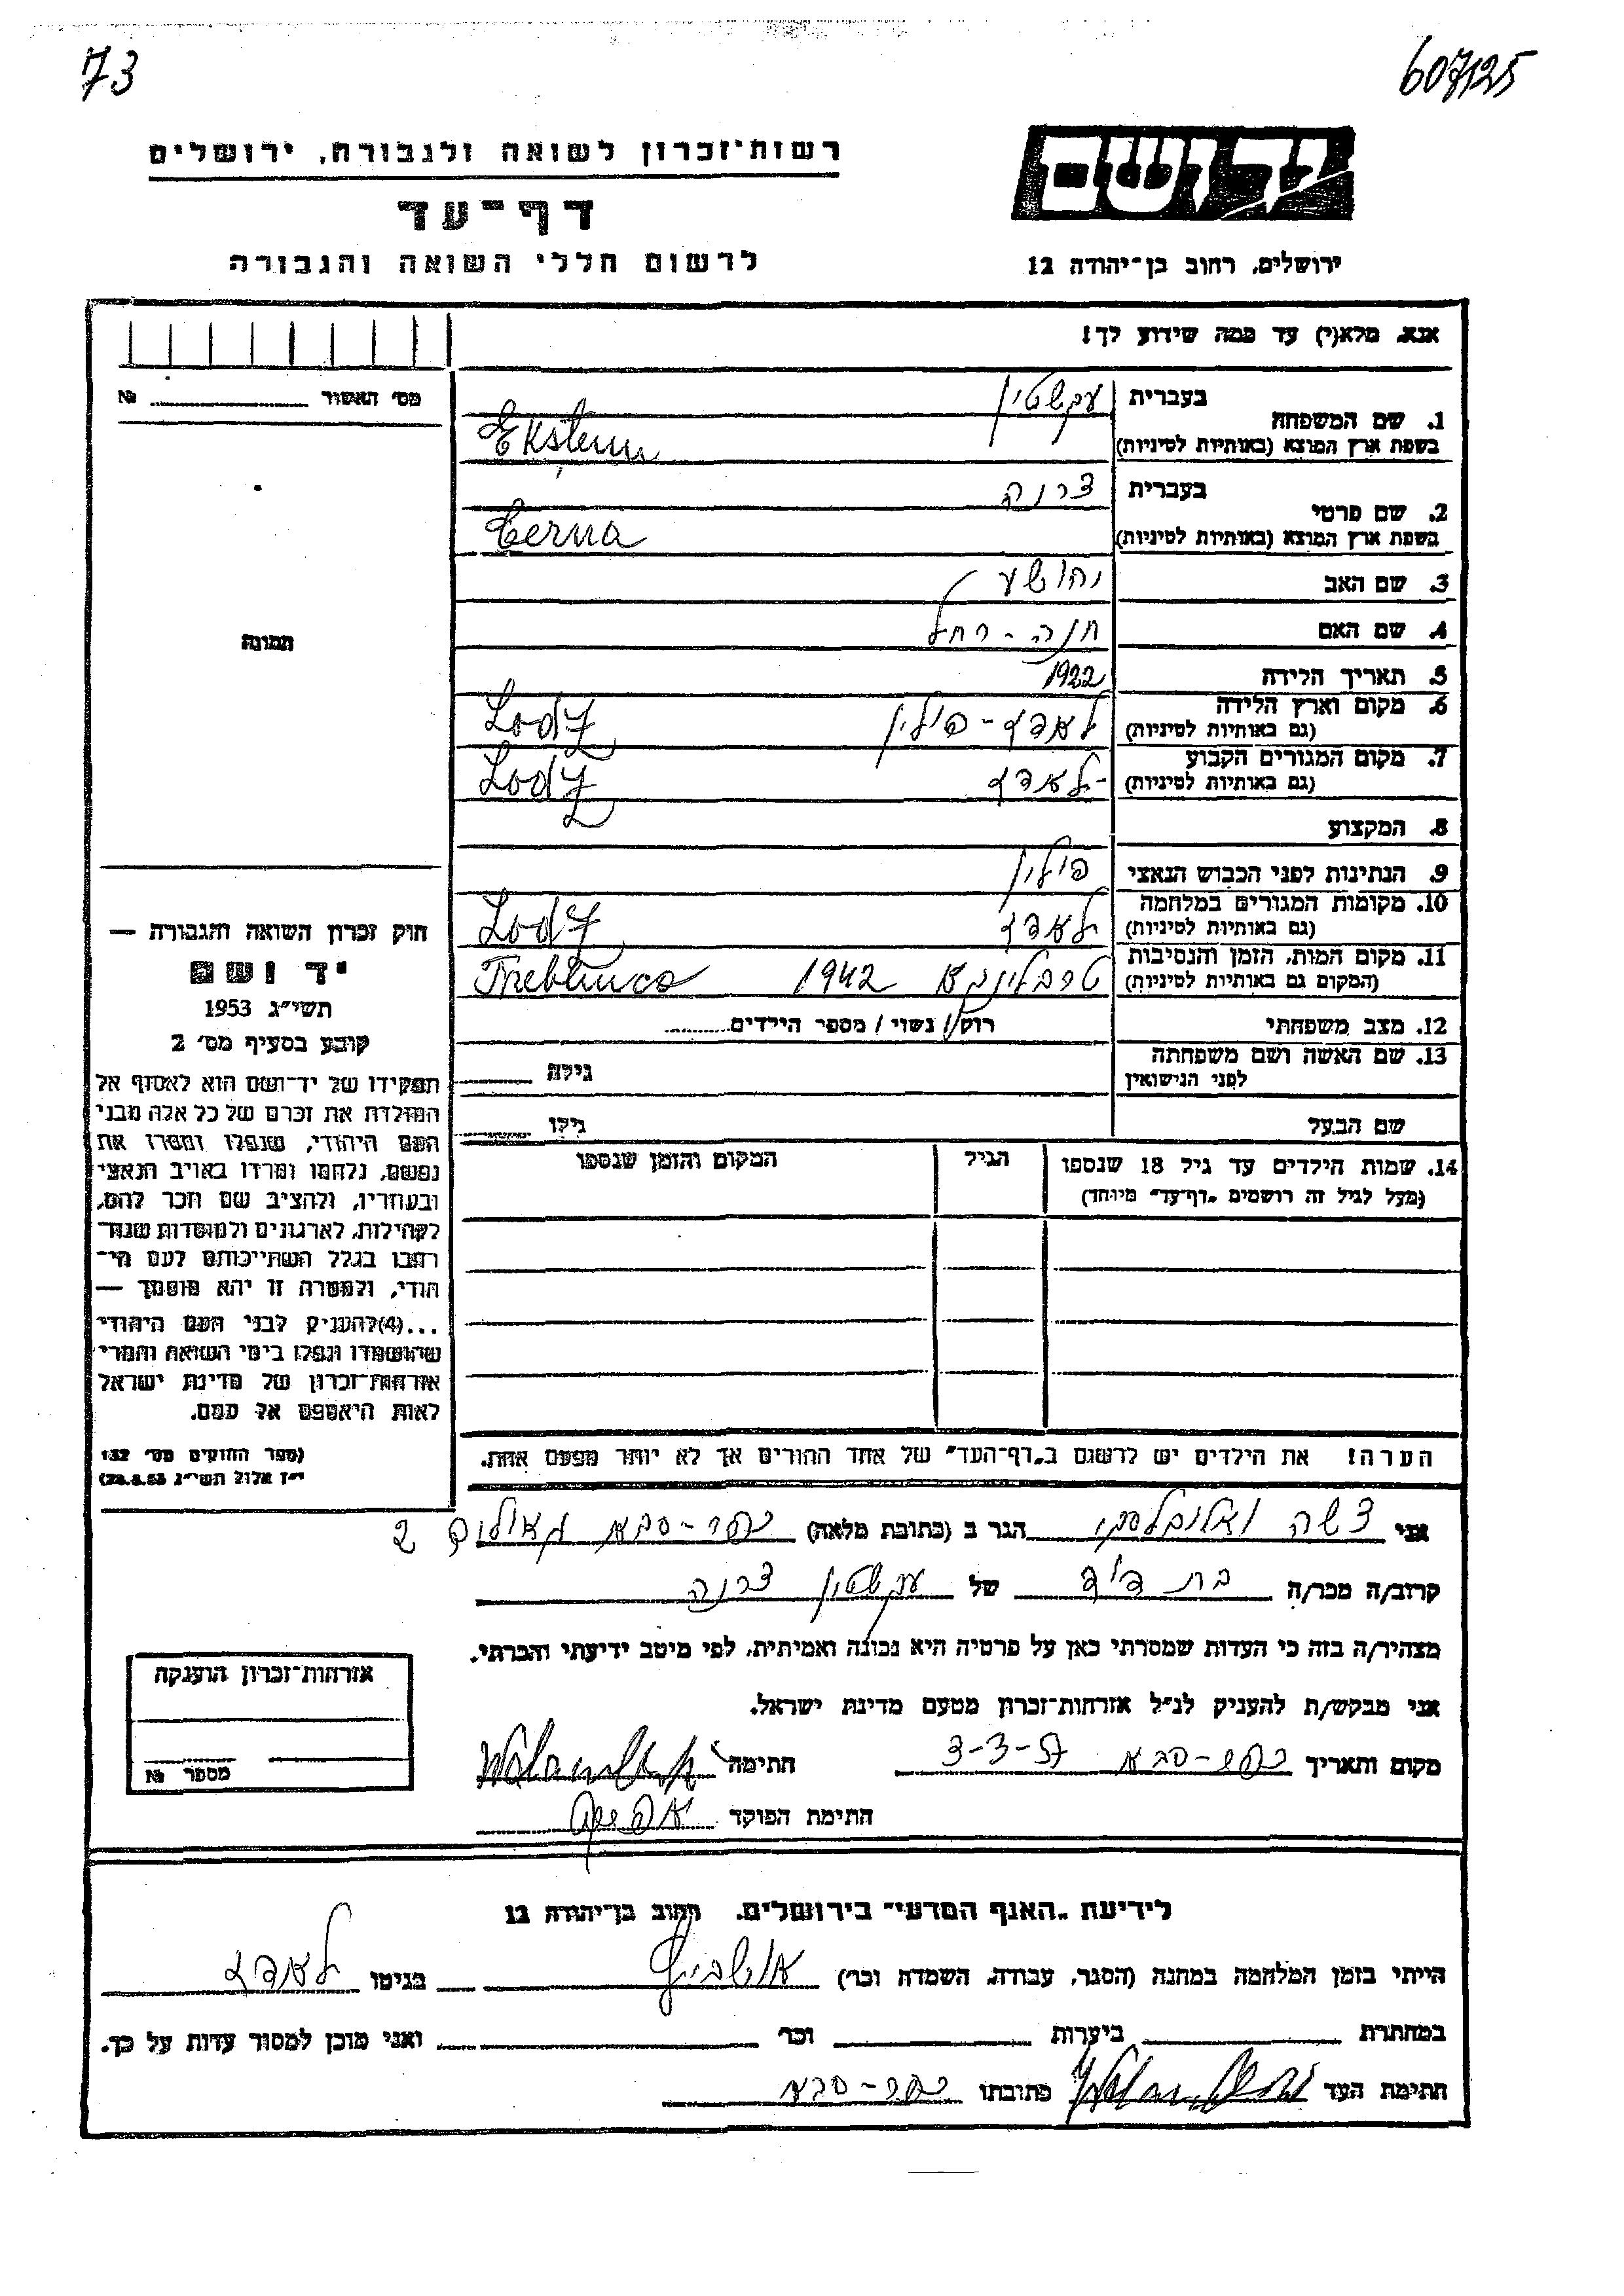 73
607125
רשות־זכרון לשואה ולגבורה, ירושלים
יד ושם
דף־עד
לרשום חללי השואה והגבורה
ירושלים, רחוב בן־יהודה 12
אנא, מלא(י) עד כמה שידוע לך!
מס' האשור № 
1. שם המשפחה בעברית עקשטין
בשפת ארץ המוצא (באותיות לטיניות) Ekstein
2. שם פרטי בעברית צרנה
בשפת ארץ המוצא (באותיות לטיניות) Cerna
3. שם האב יהושע
4. שם האם חנה - רחל
תמונה
5. תאריך הלידה 1922
6. מקום וארץ הלידה לאדז - פולין Lodz
(גם באותיות לטיניות)
7. מקום המגורים הקבוע לאדז Lodz
(גם באותיות לטיניות)
8. המקצוע
9. הנתינות לפני הכבוש הנאצי פולין
10. מקומות המגורים במלחמה לאדז Lodz
(גם באותיות לטיניות)
11. מקום המות, הזמן והנסיבות טרבלינקא 1942 Treblinca
(המקום גם באותיות לטיניות)
12. מצב משפחתי רוק / נשוי / מספר הילדים
13. שם האשה ושם משפחתה גילה
לפני הנישואין
שם הבעל גילו
14. שמות הילדים עד גיל 18 שנספו הגיל המקום והזמן שנספו
(מעל לגיל זה רושמים „דף־עד" מיוחד)
הערה! את הילדים יש לרשום ב„דף־העד" של אחד ההורים אך לא יותר מפעם אחת.
חוק זכרון השואה והגבורה —
יד ושם
תשי"ג 1953
קובע בסעיף מס' 2
תפקידו של יד־ושם הוא לאסוף אל
המולדת את זכרם של כל אלה מבני
העם היהודי, שנפלו ומסרו את
נפשם, נלחמו ומרדו באויב הנאצי
ובעוזריו, ולהציב שם וזכר להם,
לקהילות, לארגונים ולמוסדות שנח־
רבו בגלל השתייכותם לעם הי־
הודי, ולמטרה זו יהא מוסמך —
...(4)להעניק לבני העם היהודי
שהושמדו ונפלו בימי השואה והמרי
אזרחות־זכרון של מדינת ישראל
לאות היאספם אל עמם.
(ספר החוקים מס' 132
י"ז אלול תשי"ג 28.8.53)
אני צשה הגר ב (כתובת מלאה) כפר-סבא גאולים 2
קרוב/ה מכר/ה בת דוד של עקשטין צרנה
מצהיר/ה בזה כי העדות שמסרתי כאן על פרטיה היא נכונה ואמיתית, לפי מיטב ידיעתי והכרתי.
אני מבקש/ת להעניק לנ"ל אזרחות־זכרון מטעם מדינת ישראל.
מקום ותאריך כפר-סבא 3-3-57 חתימה
חתימת הפוקד
אזרחות־זכרון הוענקה
מספר №
לידיעת „האגף המדעי" בירושלים, רחוב בן־יהודה 12
הייתי בזמן המלחמה במחנה (הסגר, עבודה, השמדה וכו') אושביץ בגיטו לאדז
במחתרת ביערות וכו' ואני מוכן למסור עדות על כך.
חתימת העד כתובתו כפר-סבא